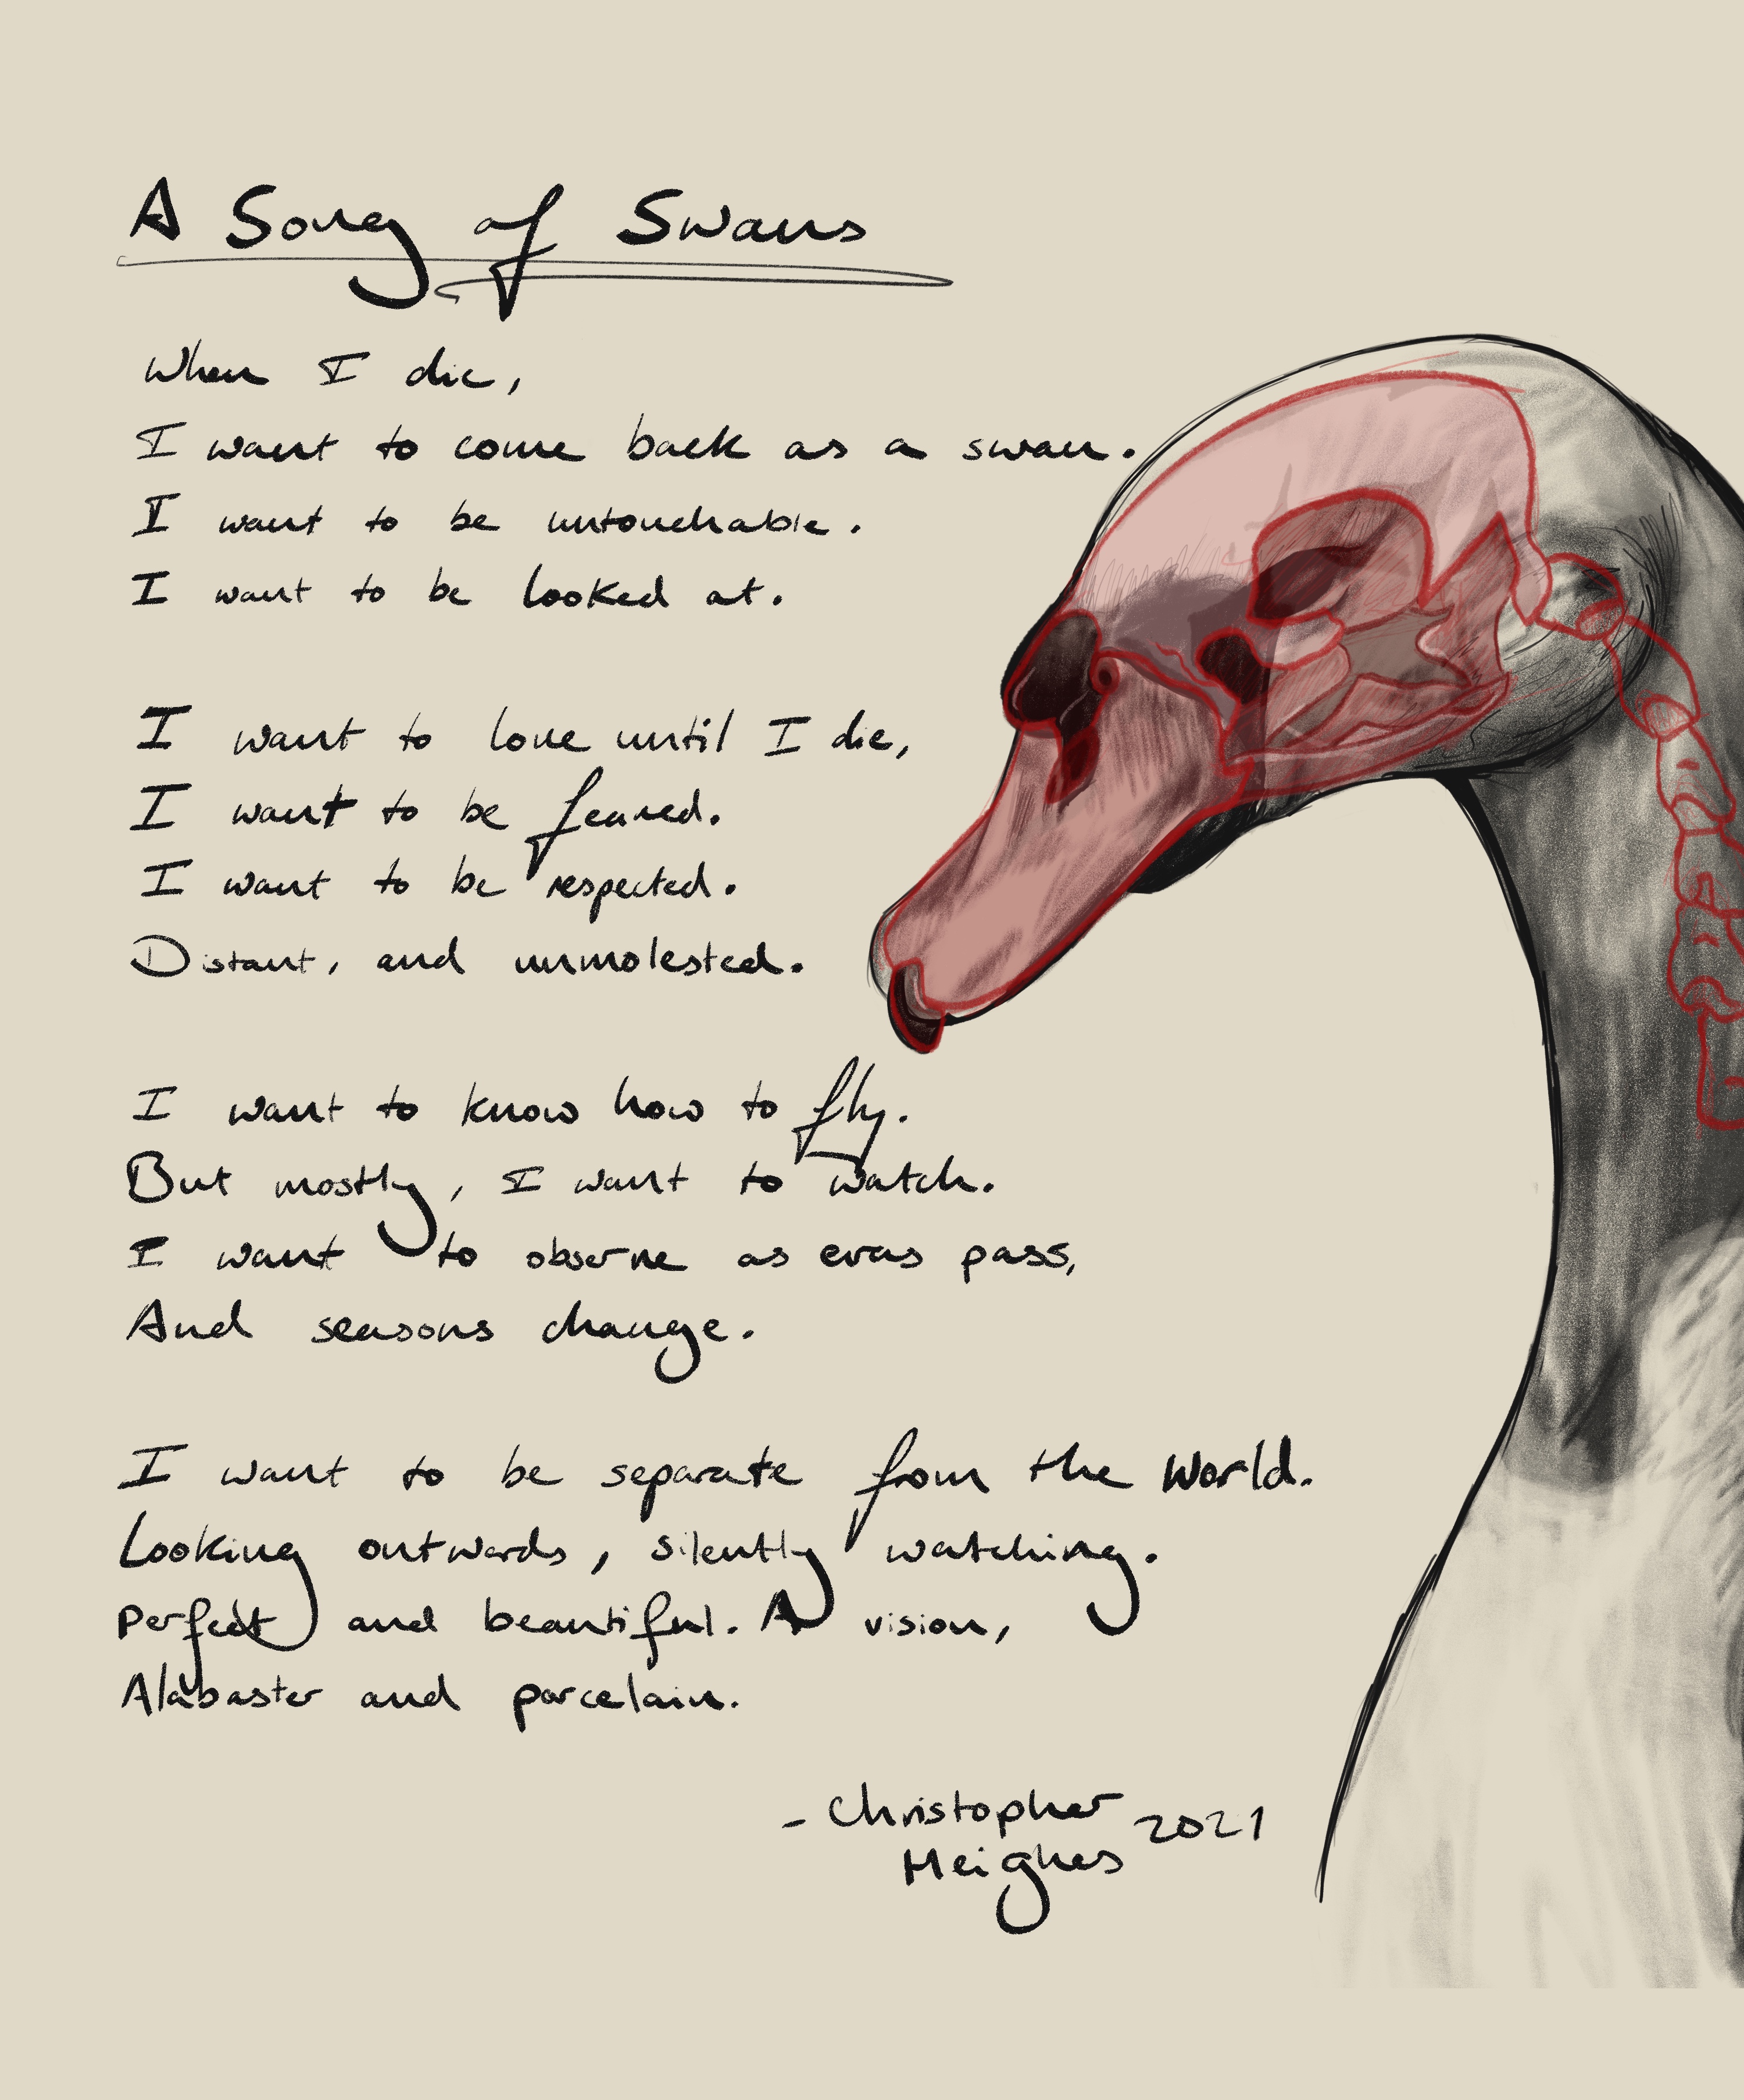 A Song of Swans
When I die,
I want to come back as a swan.
I want to be untouchable.
I want to be looked at.
I want to love until I die,
I want to be feared.
I want to be respected.
Distant, and unmolested.
I want to know how to fly.
But mostly, I want to watch.
I want to observe as eras pass,
And seasons change.
I want to be separate from the world.
Looking outwards, silently watching.
Perfect and beautiful. A vision,
Alabaster and porcelain.
- Christopher 2021
Meighes